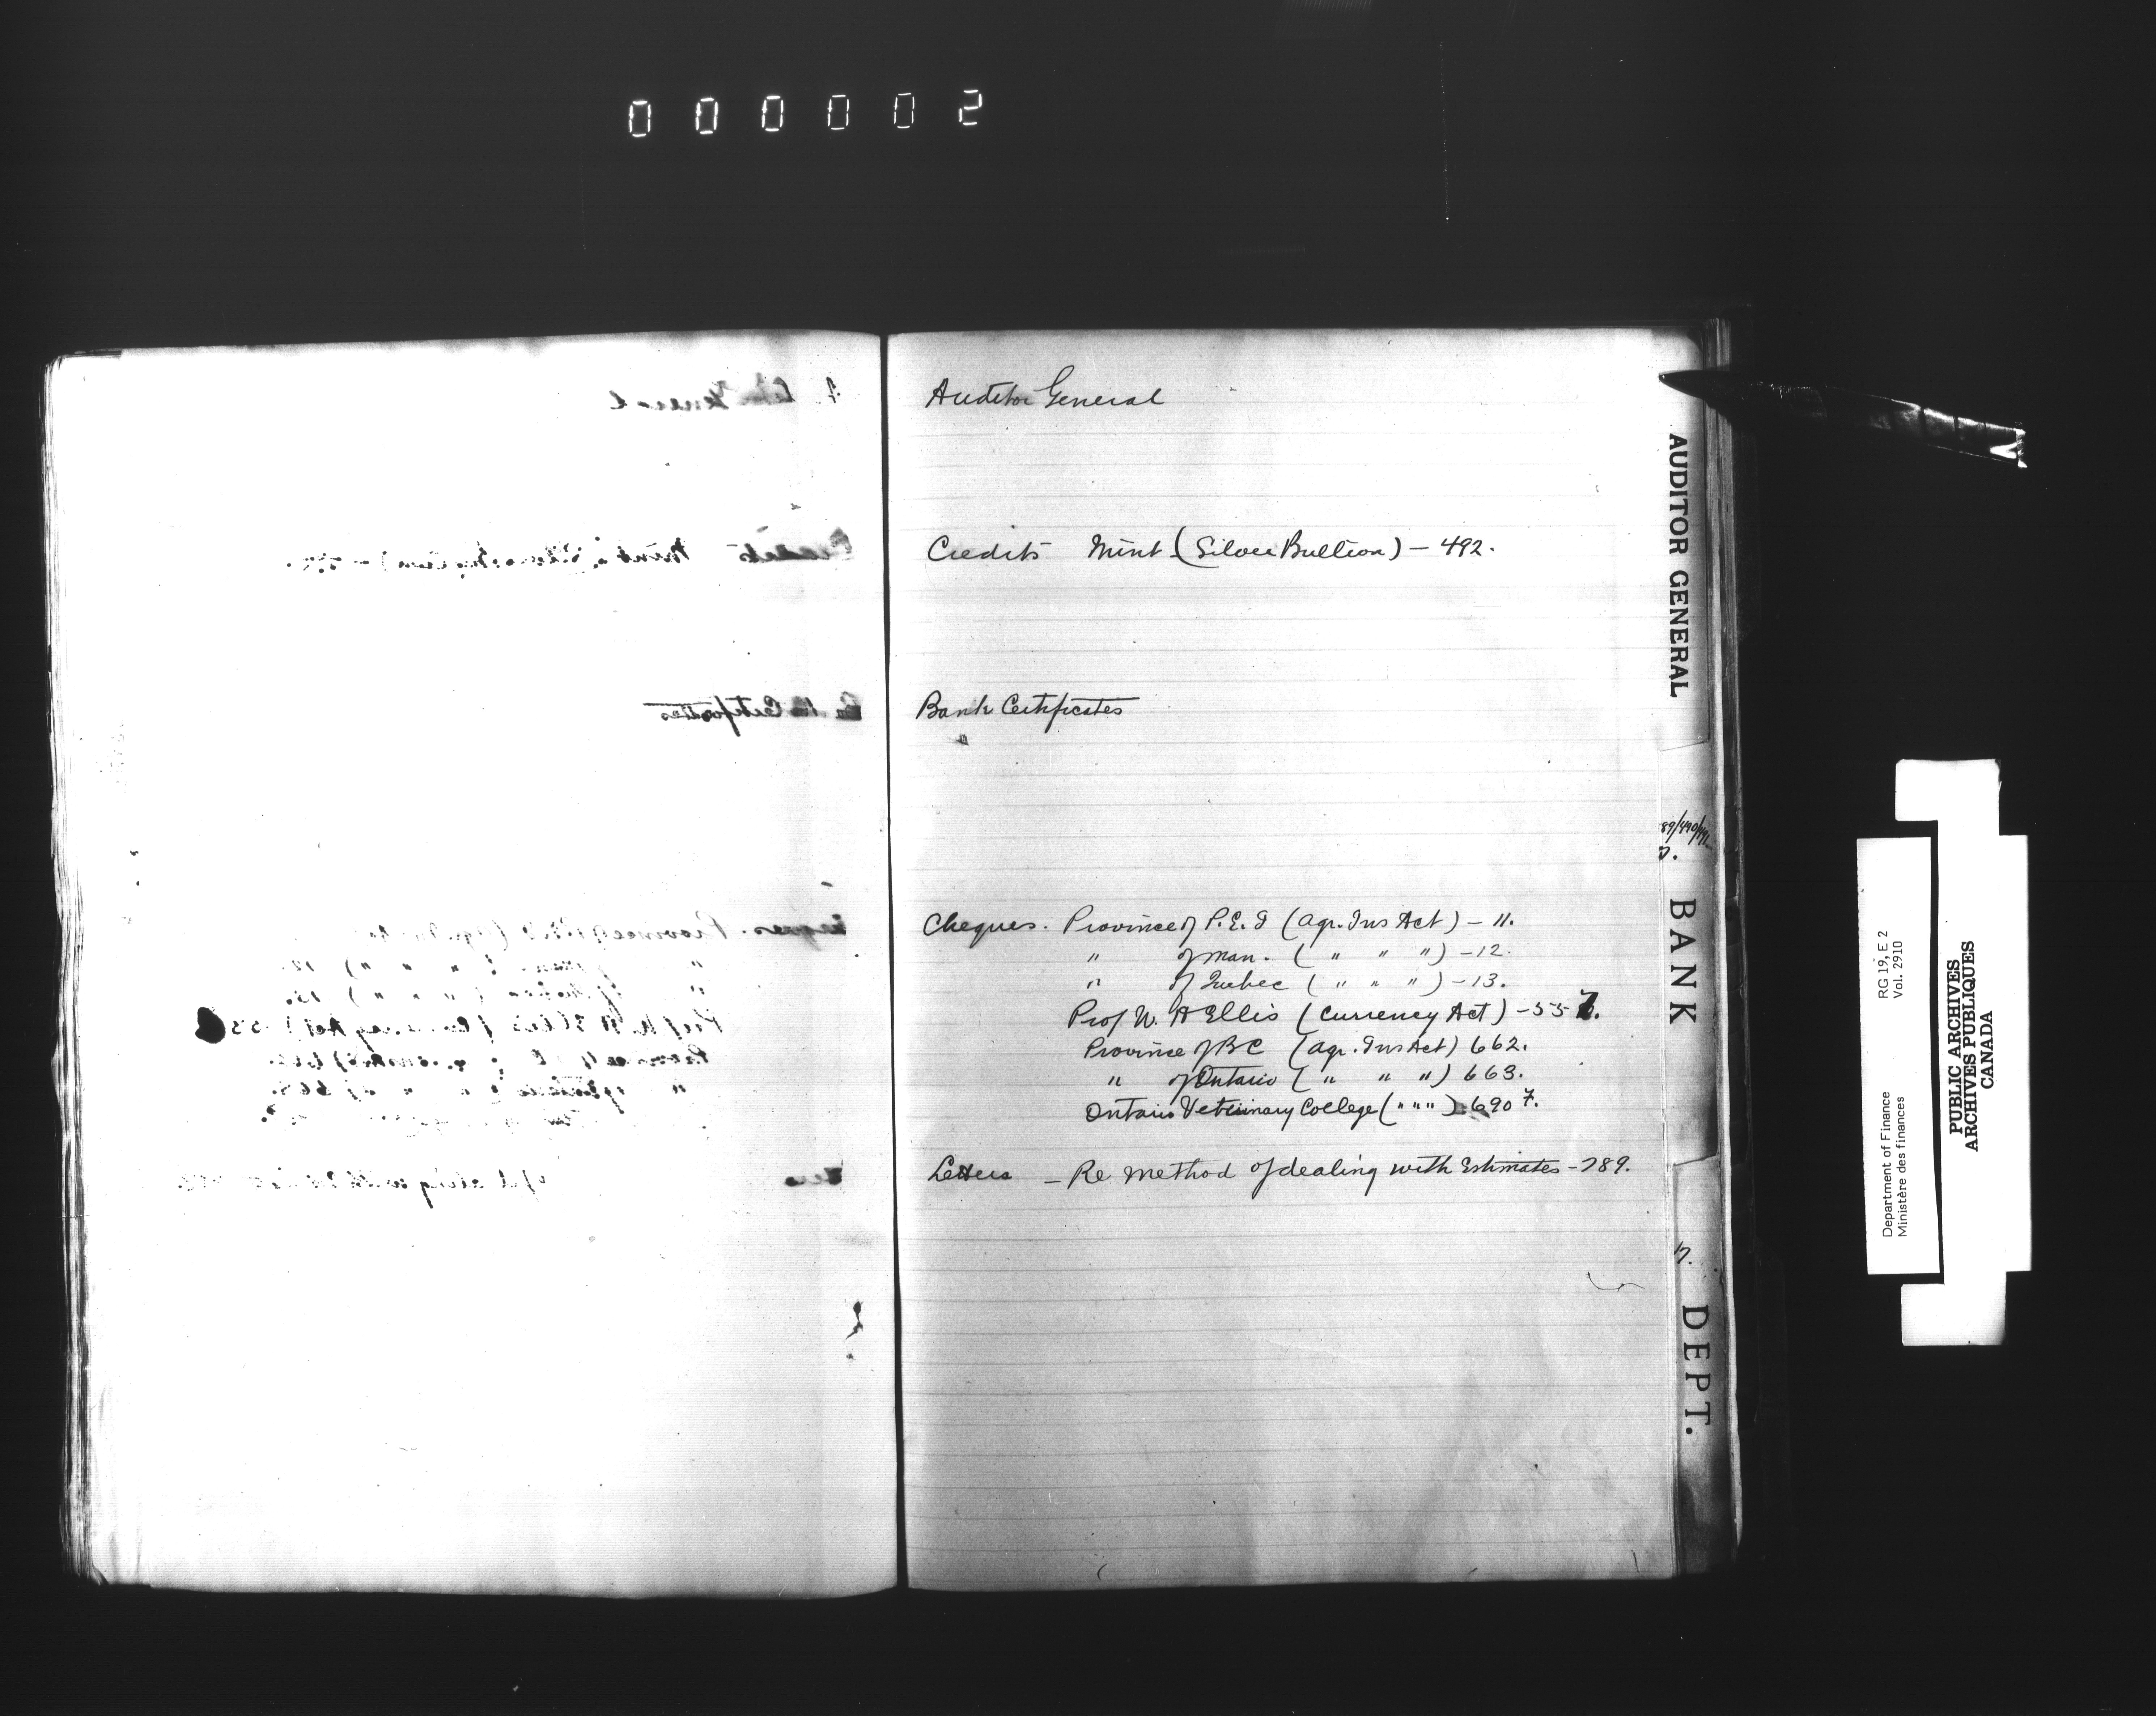 000002
Auditor General
Credits Mint (Silver Bullion) – 492.
Bank Certificates
Cheques. Province of P.E.I (Agr. Ins Act) – 11.
" of Man. ( " " ") – 12.
" of Quebec ( " " ") – 13.
Prof W. H Ellis (Currency Act) – 557.
Province of BC (Agr. Ins Act) 662.
" of Ontario ( " " ") 663.
Ontario Veterinary College ( " " " ) 690 7.
Letters – Re Method of dealing with Estimates – 789.
AUDITOR GENERAL
89/490/491
7.
BANK
17.
DEPT.
Department of Finance
Ministère des finances
RG 19, E 2
Vol. 2910
PUBLIC ARCHIVES
ARCHIVES PUBLIQUES
CANADA